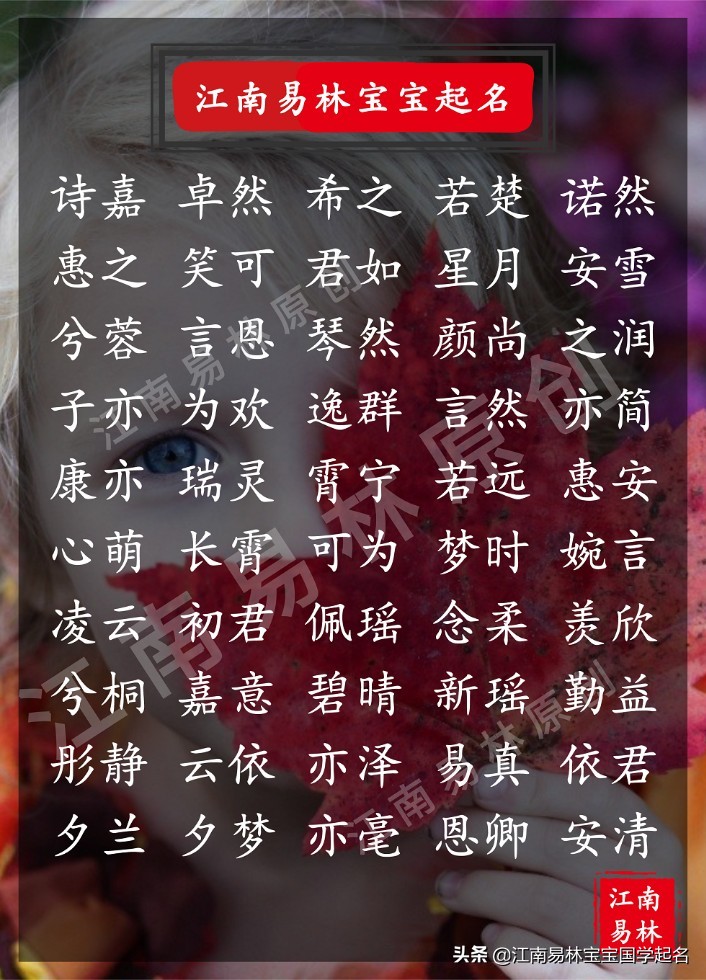 江南易林宝宝起名
诗嘉 卓然 希之 若楚 诺然
惠之 笑可 君如 星月 安雪
兮蓉 言恩 琴然 颜尚 之润
子亦 为欢 逸群 言然 亦简
康亦 瑞灵 霄宁 若远 惠安
心萌 长霄 可为 梦时 婉言
凌云 初君 佩瑶 念柔 羡欣
兮桐 嘉意 碧晴 新瑶 勤益
彤静 云依 亦泽 易真 依君
夕兰 夕梦 亦毫 恩卿 安清
江南易林原创
江南易林原创
江南易林原创
江南
易林
头条 @江南易林宝宝国学起名